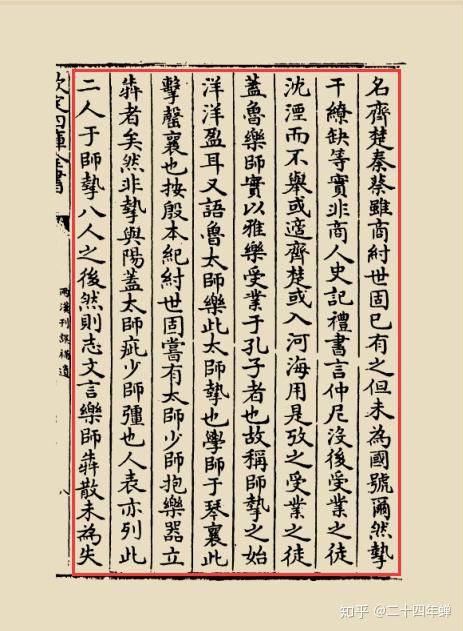 名齊楚秦蔡雖商紂世固已有之但未為國號爾然摯
干繚缺等實非商人史記禮書言仲尼沒後受業之徒
沈湮而不舉或適齊楚或入河海用是攷之受業之徒
蓋魯樂師實以雅樂受業于孔子者也故稱師摯之始
洋洋盈耳又語魯太師樂此太師摯也學師于琴襄此
擊磬襄也按殷本紀紂世固嘗有太師少師抱樂器立
犇者矣然非摯與陽蓋太師疵少師彊也人表亦列此
二人于師摯八人之後然則志文言樂師犇散未為失
欽定四庫全書
兩漢刊誤補遺
八
知乎 @二十四年蝉